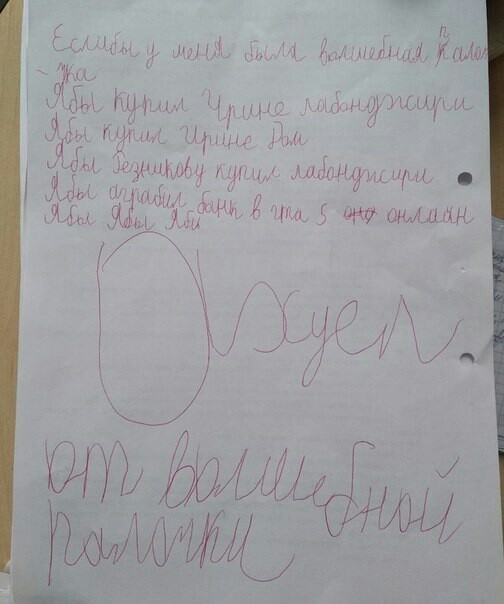 Еслибы у меня была волшебная палоч
- чка
Ябы купил Ирине лабонджири
Ябы купил Ирине Дом
Ябы безникову купил лабонджири
Ябы аграбил банк в гта 5 онлайн
Ябы Ябы Ябы
Охуел
от волшебной
палочки